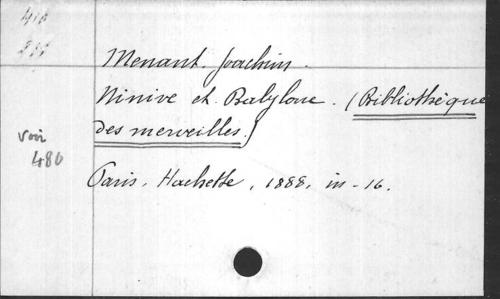 Menant. Joachim.
Ninive et Babylone. (Bibliothèque
des merveilles.)
Voir
480
Paris, Hachette, 1888, in-16.